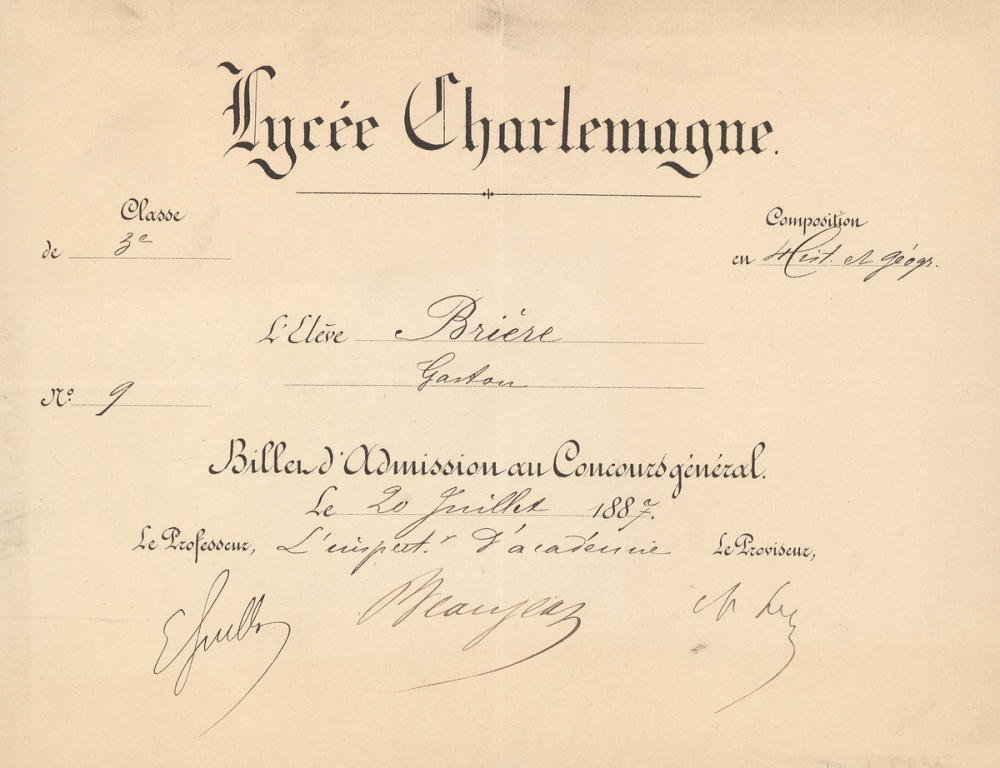 Lycée Charlemagne.
Classe
de 3e
Composition
en Hist. et géogr.
L'Elève Brière
Gaston
No. 9
Billet d'Admission au Concours général.
Le 20 Juillet 1887.
Le Professeur, L'inspect.r d'académie Le Proviseur,